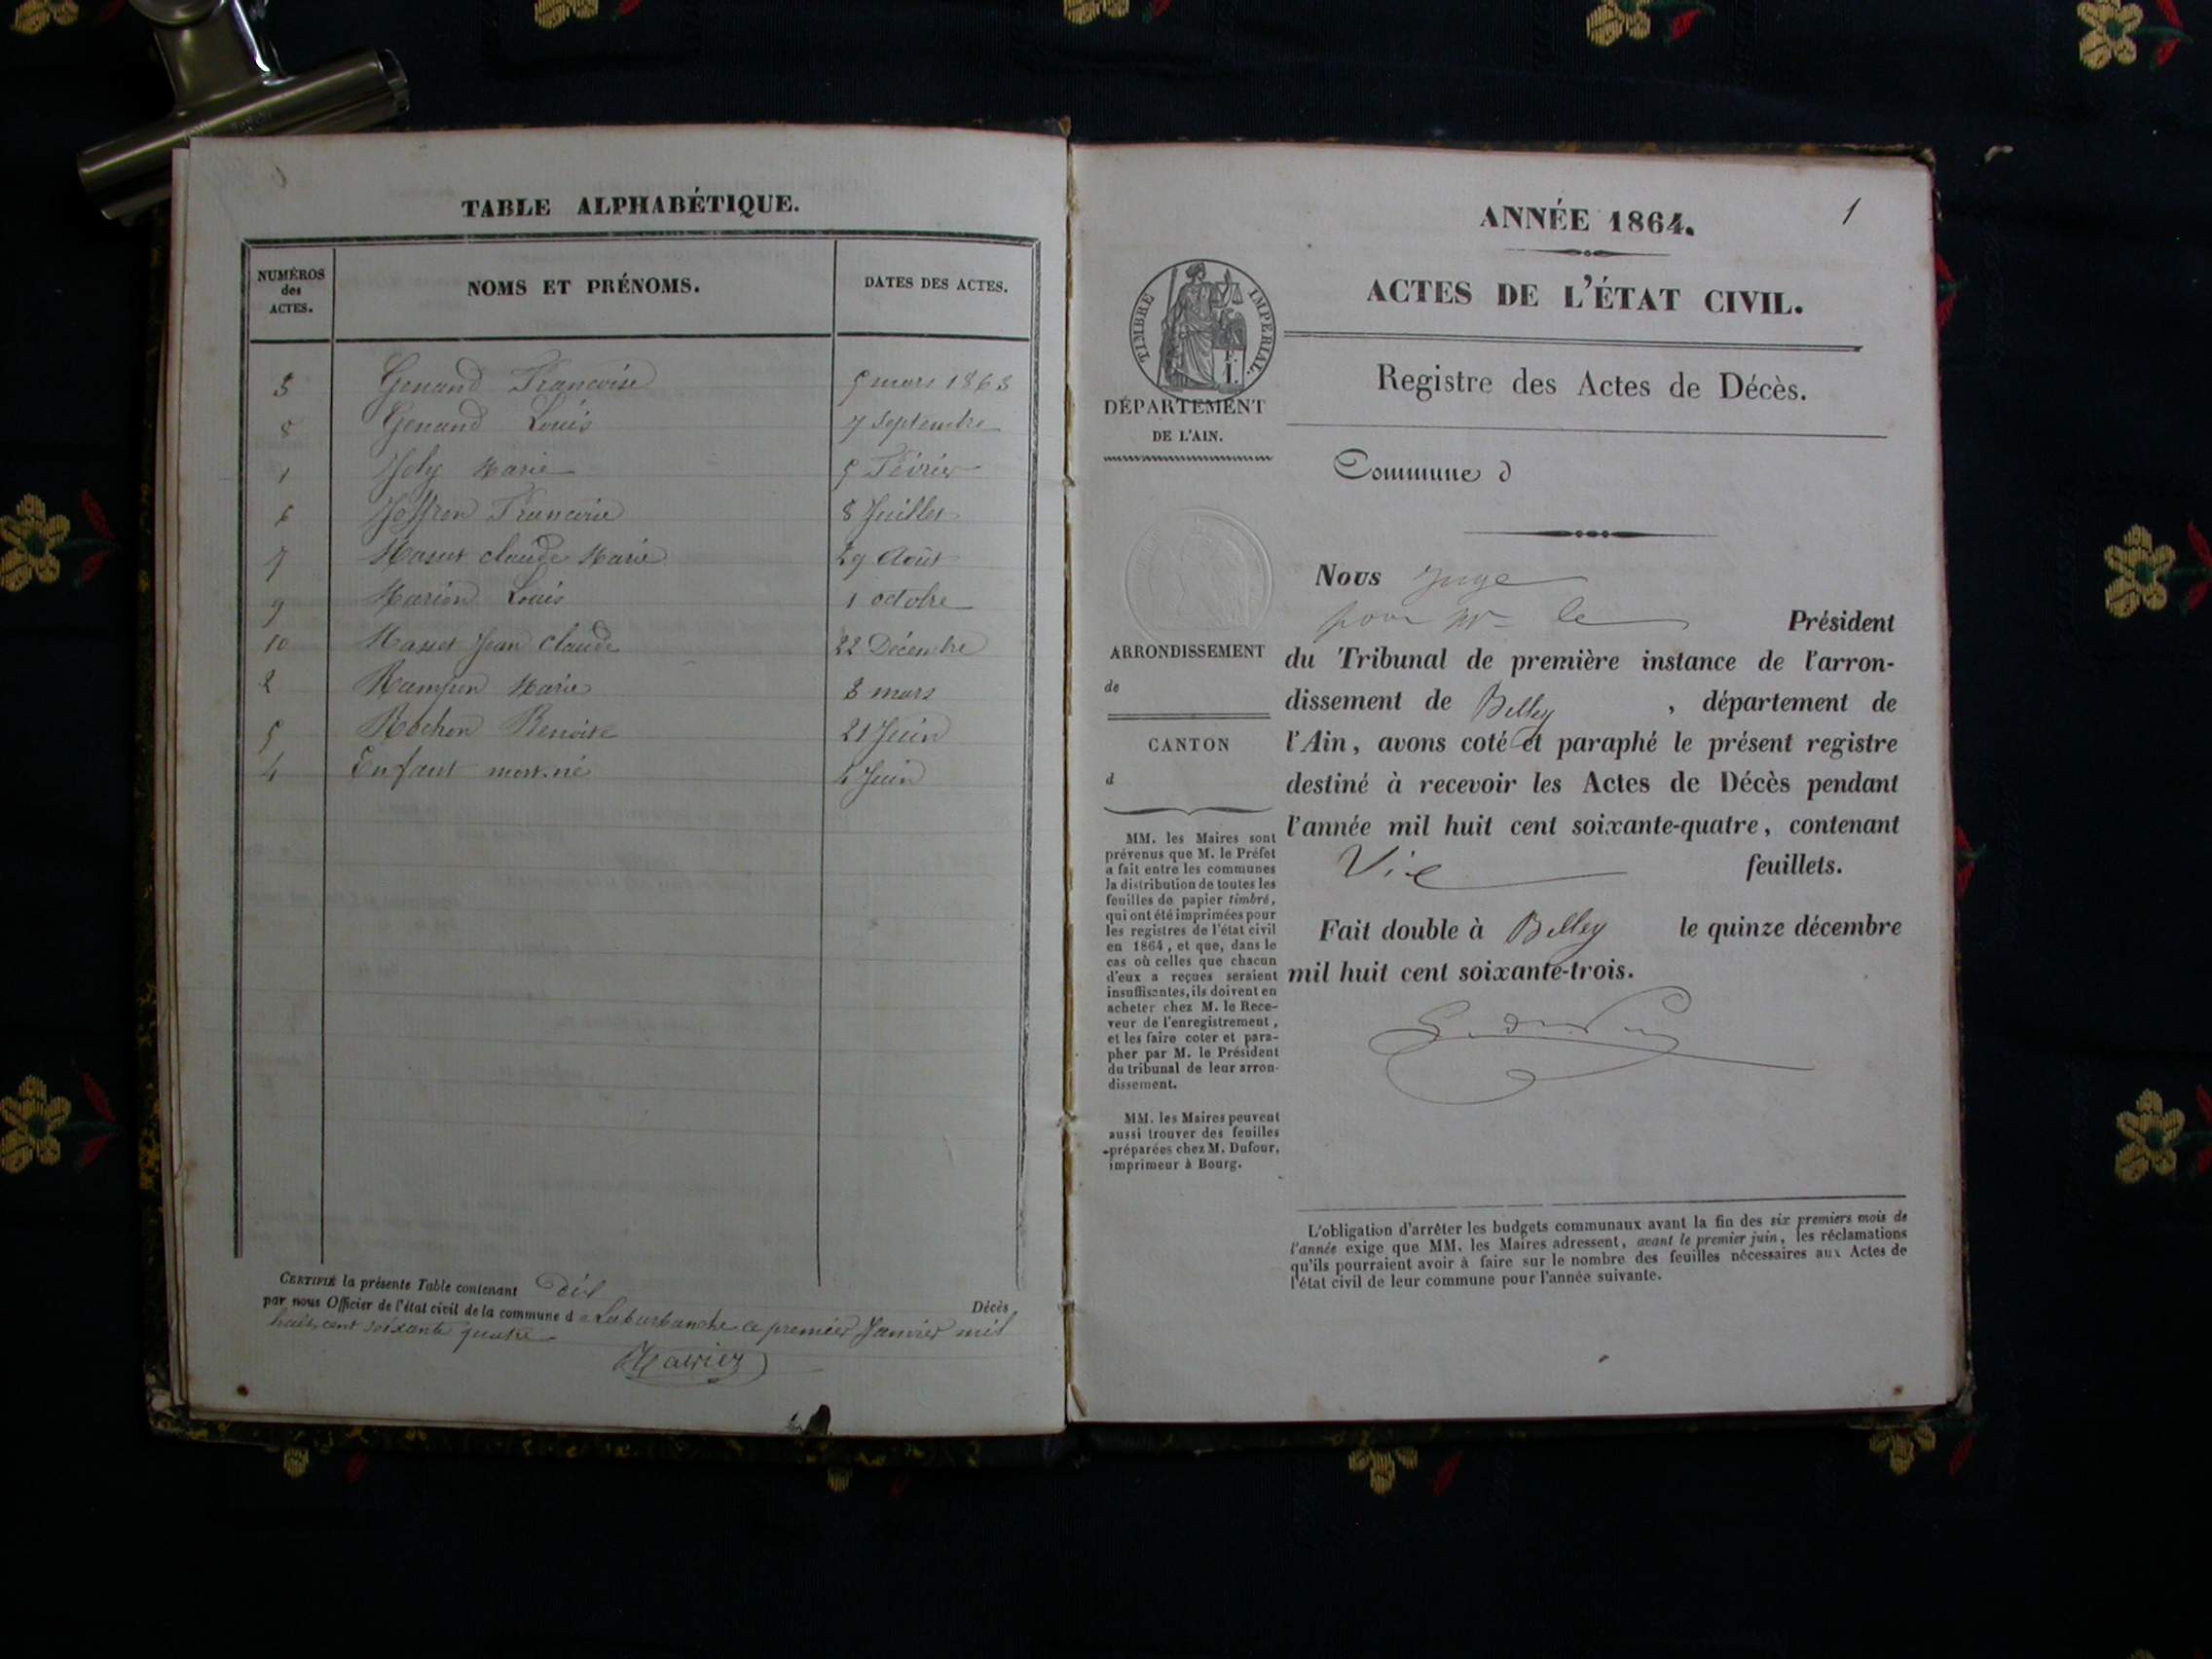 TABLE ALPHABÉTIQUE.
NUMÉROS des ACTES. NOMS ET PRÉNOMS. DATES DES ACTES.
3 Genand Francoise 5 mars 1863
8 Genand Louis 7 Septembre
1 Joly Marie 5 Février
6 Joffron Francoise 8 Juillet
7 Masset claude Marie 29 Août
9 Marion Louis 1 octobre
10 Masset Jean Claude 22 Décembre
2 Marie 3 mars
5 Rochon Benoite 21 Juin
4 Enfant mort-né 4 Juin
CERTIFIÉ la présente Table contenant dix Décès,
par nous Officier de l'état civil de la commune d e Laburbanche ce premier Janvier mil
huit cent soixante quatre
ANNÉE 1864. 1
ACTES DE L'ÉTAT CIVIL.
Registre des Actes de Décès.
TIMBRE IMPERIAL
DÉPARTEMENT
DE L'AIN.
Commune d
ARRONDISSEMENT
de
CANTON
d
MM. les Maires sont
prévenus que M. le Préfet
a fait entre les communes
la distribution de toutes les
feuilles de papier timbré,
qui ont été imprimées pour
les registres de l'état civil
en 1864, et que, dans le
cas où celles que chacun
d'eux a reçues seraient
insuffisantes, ils doivent en
acheter chez M. le Rece-
veur de l'enregistrement,
et les faire coter et para-
pher par M. le Président
du tribunal de leur arron-
dissement.
MM. les Maires peuvent
aussi trouver des feuilles
préparées chez M. Dufour,
imprimeur à Bourg.
Nous Juge
pour Mr le Président
du Tribunal de première instance de l'arron-
dissement de Belley, département de
l'Ain, avons coté et paraphé le présent registre
destiné à recevoir les Actes de Décès pendant
l'année mil huit cent soixante-quatre, contenant
feuillets.
Fait double à Belley le quinze décembre
mil huit cent soixante-trois.
L'obligation d'arrêter les budgets communaux avant la fin des six premiers mois de
l'année exige que MM. les Maires adressent, avant le premier juin, les réclamations
qu'ils pourraient avoir à faire sur le nombre des feuilles nécessaires aux Actes de
l'état civil de leur commune pour l'année suivante.